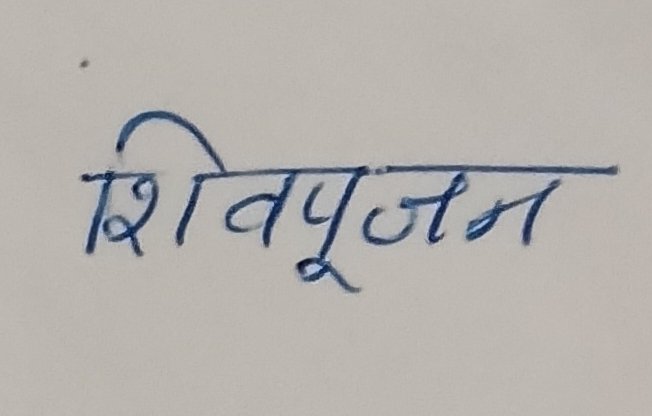 शिवपूजन